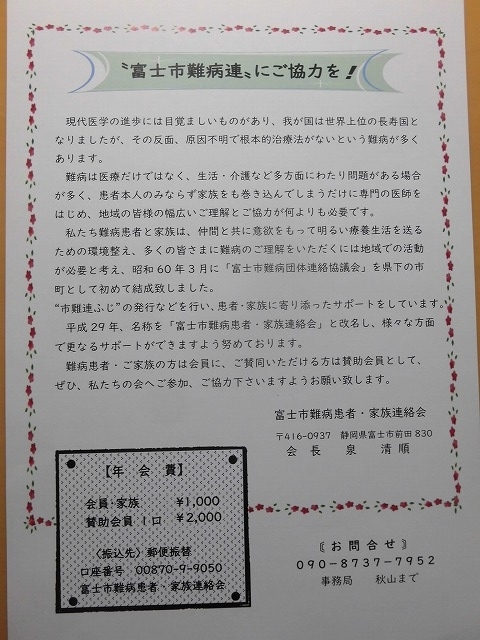 〝富士市難病連〟にご協力を！
現代医学の進歩には目覚ましいものがあり、我が国は世界上位の長寿国と
なりましたが、その反面、原因不明で根本的治療法がないという難病が多く
あります。
難病は医療だけではなく、生活・介護など多方面にわたり問題がある場合
が多く、患者本人のみならず家族をも巻き込んでしまうだけに専門の医師を
はじめ、地域の皆様の幅広いご理解とご協力が何よりも必要です。
私たち難病患者と家族は、仲間と共に意欲をもって明るい療養生活を送る
ための環境整え、多くの皆さまに難病のご理解をいただくには地域での活動
が必要と考え、昭和60年3月に「富士市難病団体連絡協議会」を県下の市
町として初めて結成致しました。
“市難連ふじ”の発行などを行い、患者・家族に寄り添ったサポートをしています。
平成29年、名称を「富士市難病患者・家族連絡会」と改名し、様々な方面
で更なるサポートができますよう努めております。
難病患者・ご家族の方は会員に、ご賛同いただける方は賛助会員として、
ぜひ、私たちの会へご参加、ご協力下さいますようお願い致します。
富士市難病患者・家族連絡会
〒416-0937 静岡県富士市前田830
会 長 泉 清 順
【年 会 費】
会員・家族 ¥1,000
賛助会員 1口 ¥2,000
〈振込先〉郵便振替
口座番号 00870-9-9050
富士市難病患者・家族連絡会
《お問合せ》
090-8737-7952
事務局 秋山まで